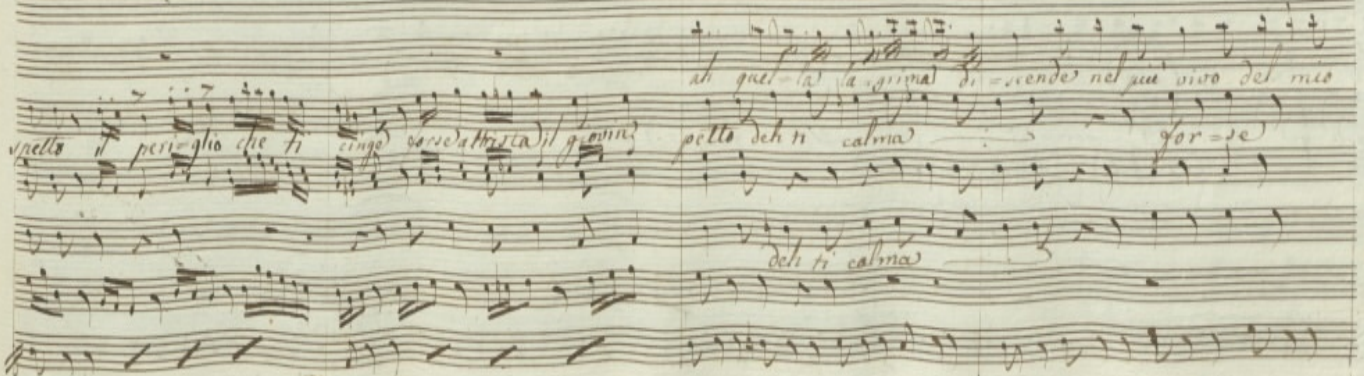 ah quel=la la=grima di=scende nel più vivo del mio
spetto il peri=glio che ti cinge forse attrista il giovin petto deh ti calma for=se
deh ti calma